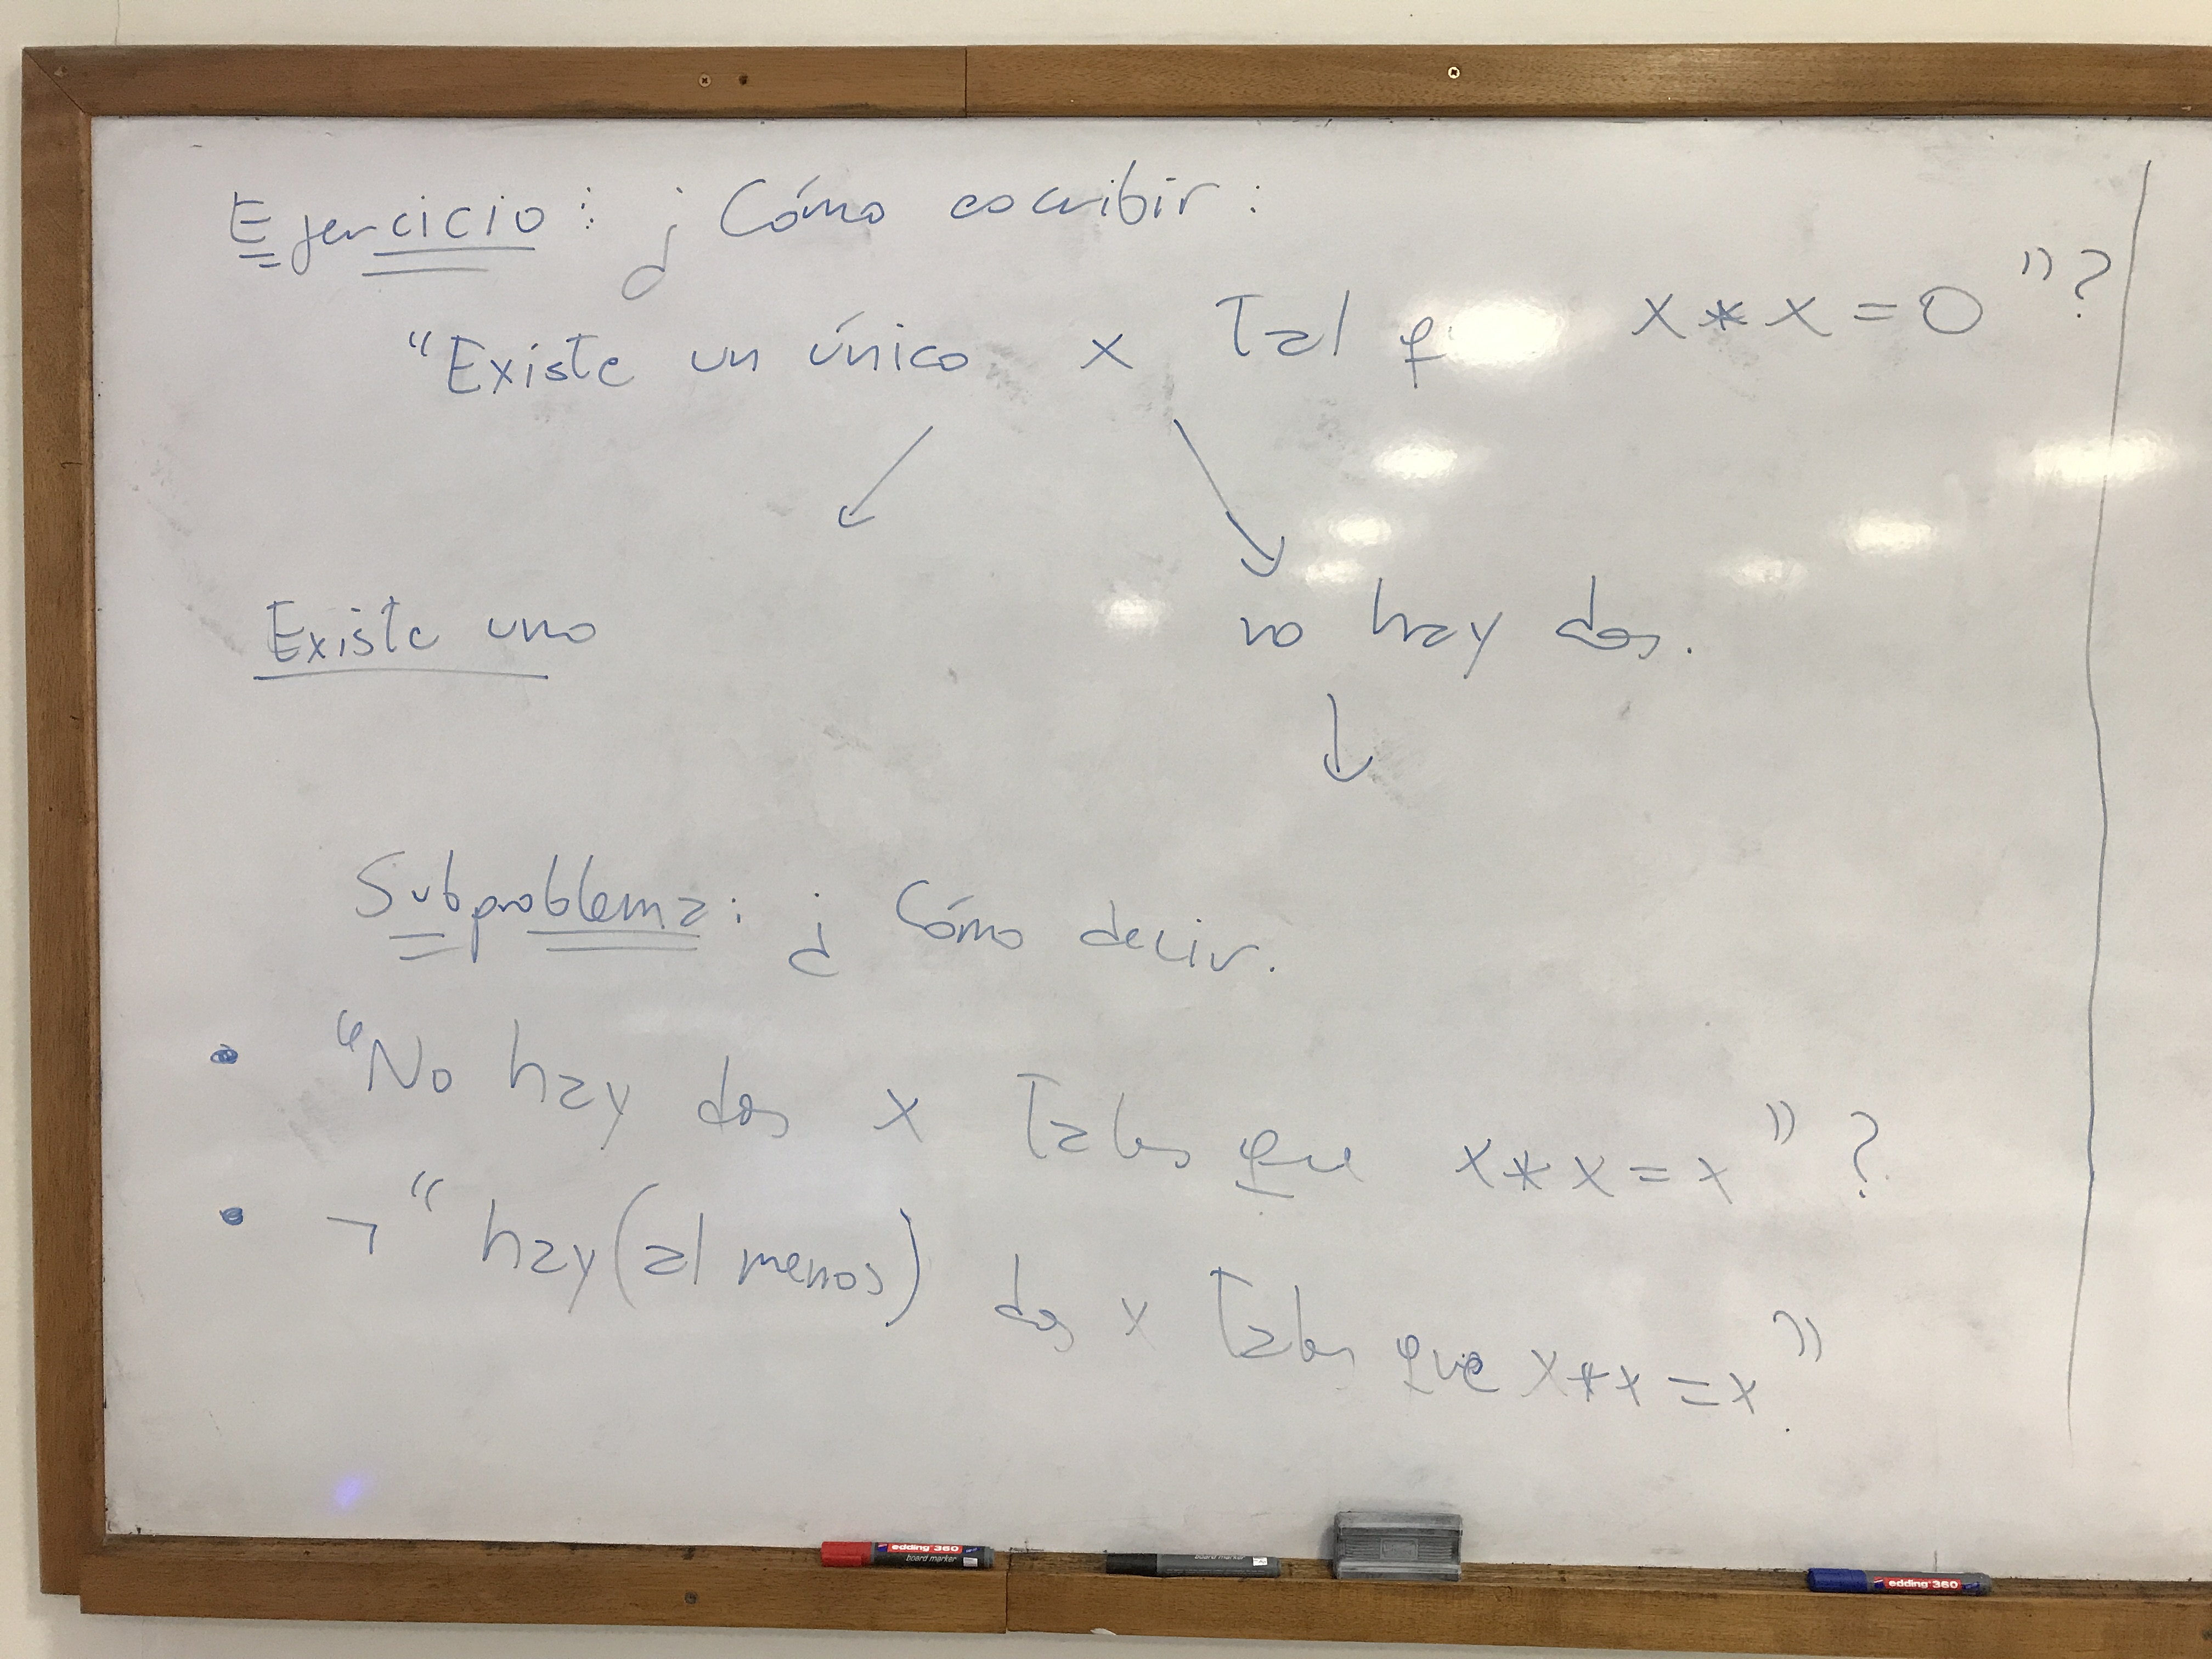 Ejercicio: ¿Cómo escribir:
"Existe un único x Tal q x * x = 0"?
Existe uno
no hay dos.
Subproblema: ¿Cómo decir.
• "No hay dos x Tales que x * x = x"?
• ¬"hay (al menos) dos x Tales que x * x = x"
edding 360
board marker
board marker
edding 360